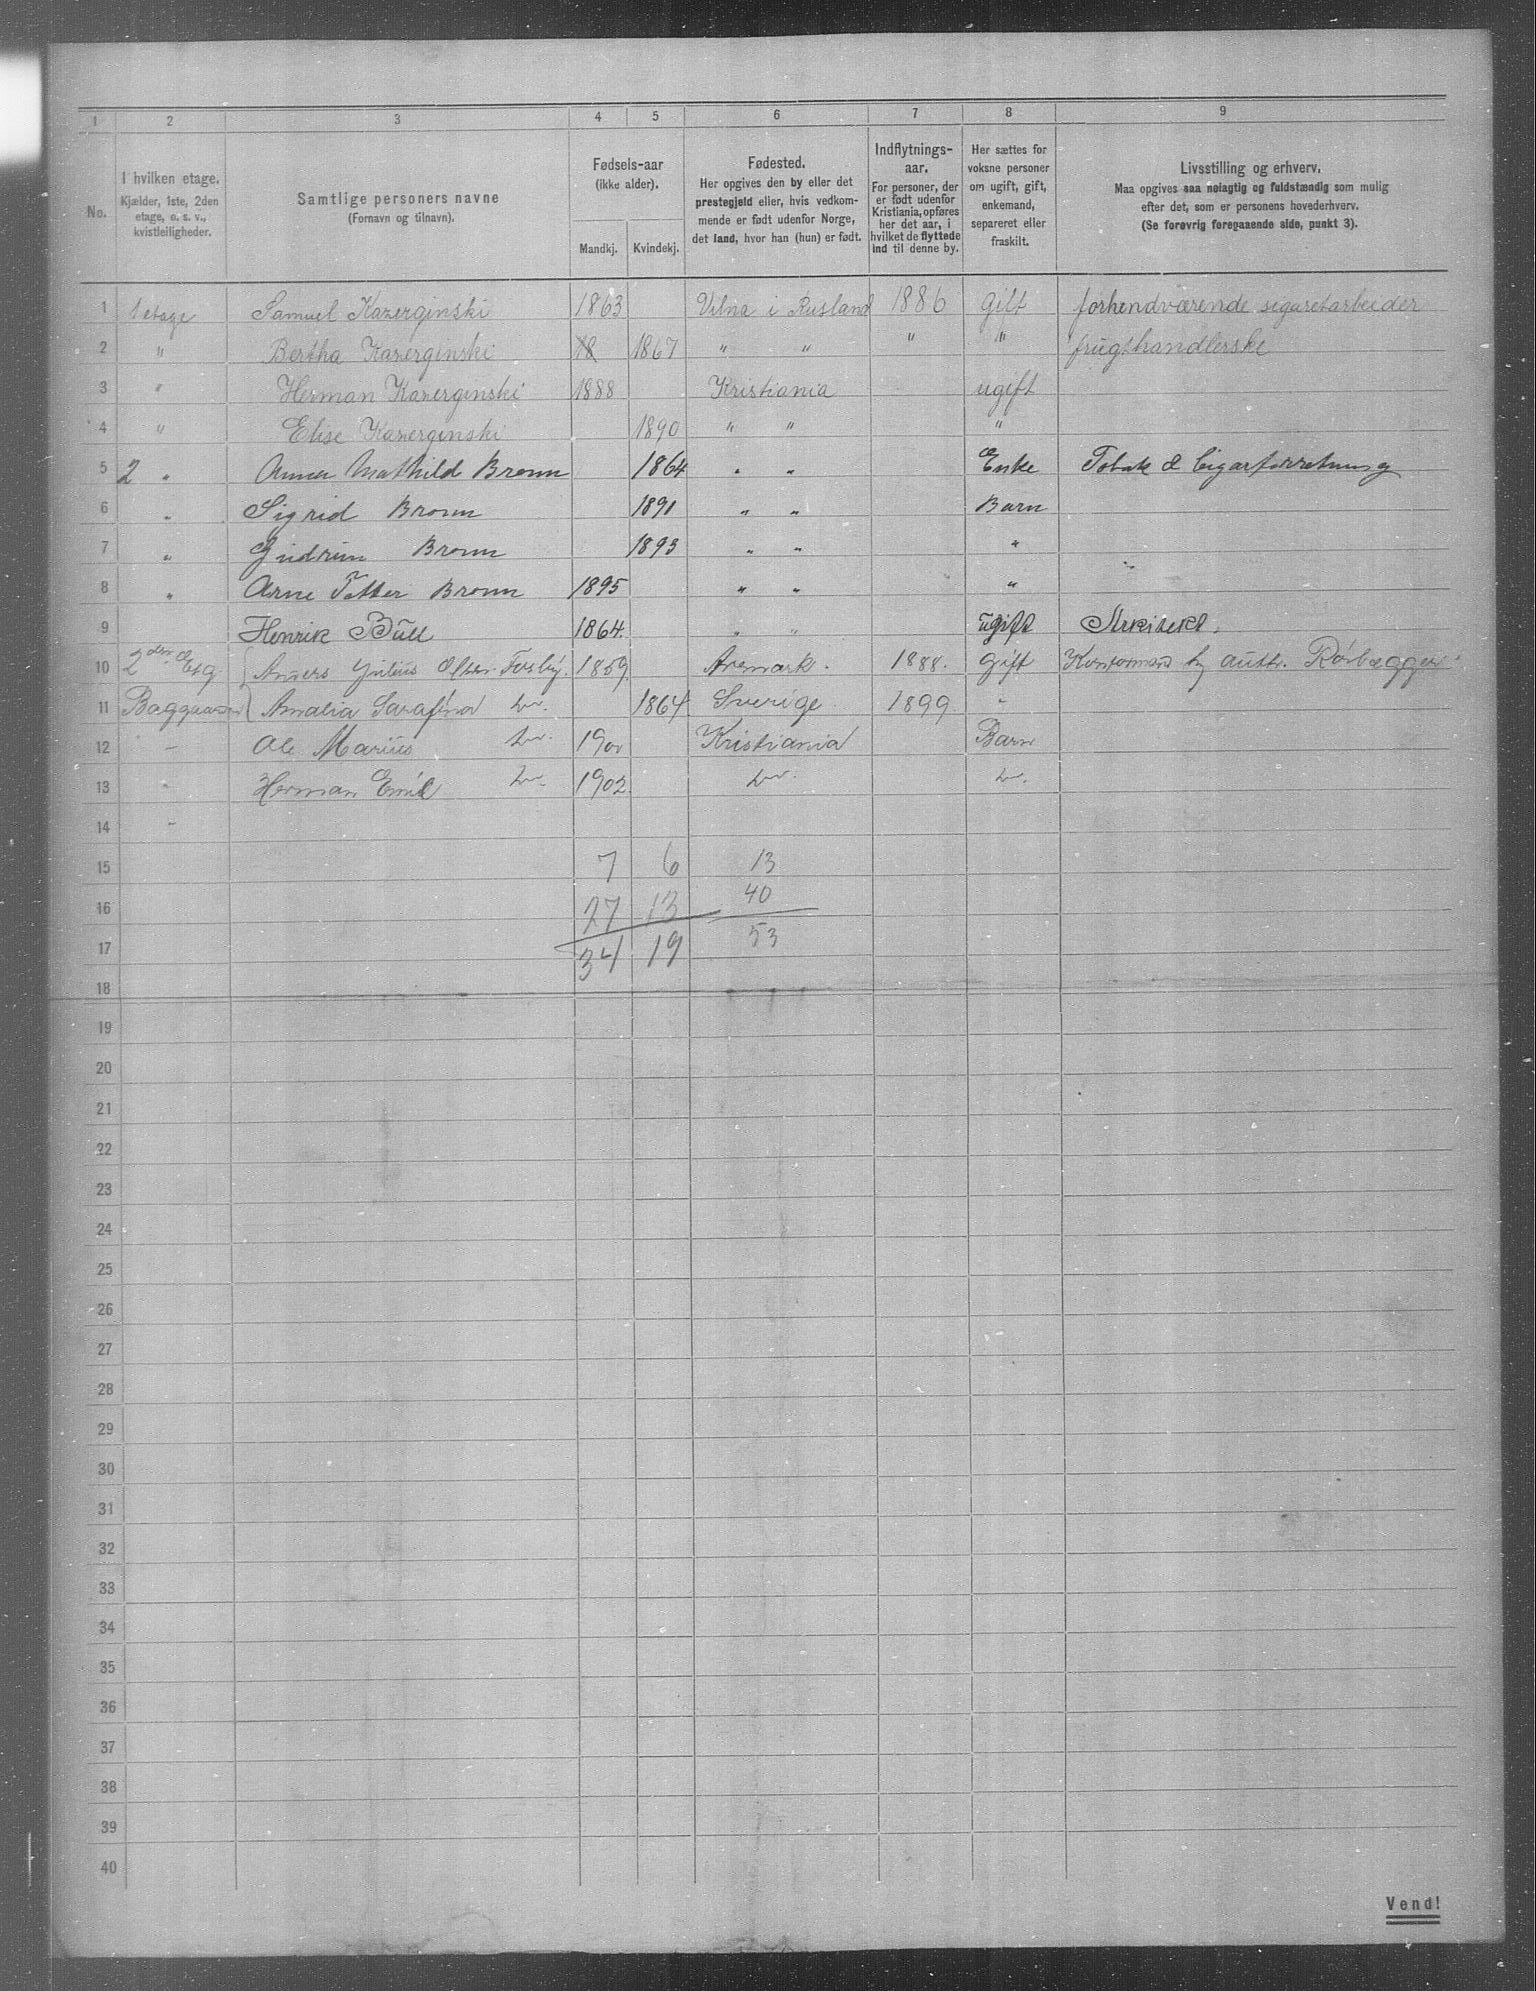 1 2 3 4 5 6 7 8 9
No.
I hvilken etage.
Kjælder, 1ste, 2den
etage, o. s. v.,
kvistleiligheder.
Samtlige personers navne
(Fornavn og tilnavn).
Fødsels-aar
(ikke alder).
Mandkj. Kvindekj.
Fødested.
Her opgives den by eller det
prestegjeld eller, hvis vedkom-
mende er født udenfor Norge,
det land, hvor han (hun) er født.
Indflytnings-
aar.
For personer, der
er født udenfor
Kristiania, opføres
her det aar, i
hvilket de flyttede
ind til denne by.
Her sættes for
voksne personer
om ugift, gift,
enkemand,
separeret eller
fraskilt.
Livsstilling og erhverv.
Maa opgives saa nøiagtig og fuldstændig som mulig
efter det, som er personens hovederhverv.
(Se forøvrig foregaaende side, punkt 3).
1 1 etage Samuel Kazerginski 1863 Vilna i Rusland 1886 Gift forhendværende sigaretarbeider
2 " Bertha Kazerginski 18 1867 " " " " frugthandlerske
3 " Herman Kazerginski 1888 Kristiania ugift
4 " Elise Kazerginski 1890 " " "
5 2 " Anna Mathild Bronn 1864 " " Enke Tobak & Cigarforretning
6 " Sigrid Bronn 1891 " " Barn
7 " Gudrun Bronn 1893 " " "
8 " Arne Bronn 1895 " " "
9 Henrik Bull 1864 " " ugift Arkitekt.
10 2den Etg Anders Julius Olsen Forsby. 1859 Aremark. 1888. Gift Kontormand
11 Amalia Sarafina do. 1864 Sverige. 1899 "
12 - Ole Marius do. 1900 Kristiania Barn
13 " Herman Emil do. 1902 do. do.
14 -
15 7 6 13
16 27 13 40
17 34 19 53
18
19
20
21
22
23
24
25
26
27
28
29
30
31
32
33
34
35
36
37
38
39
40
Vend!